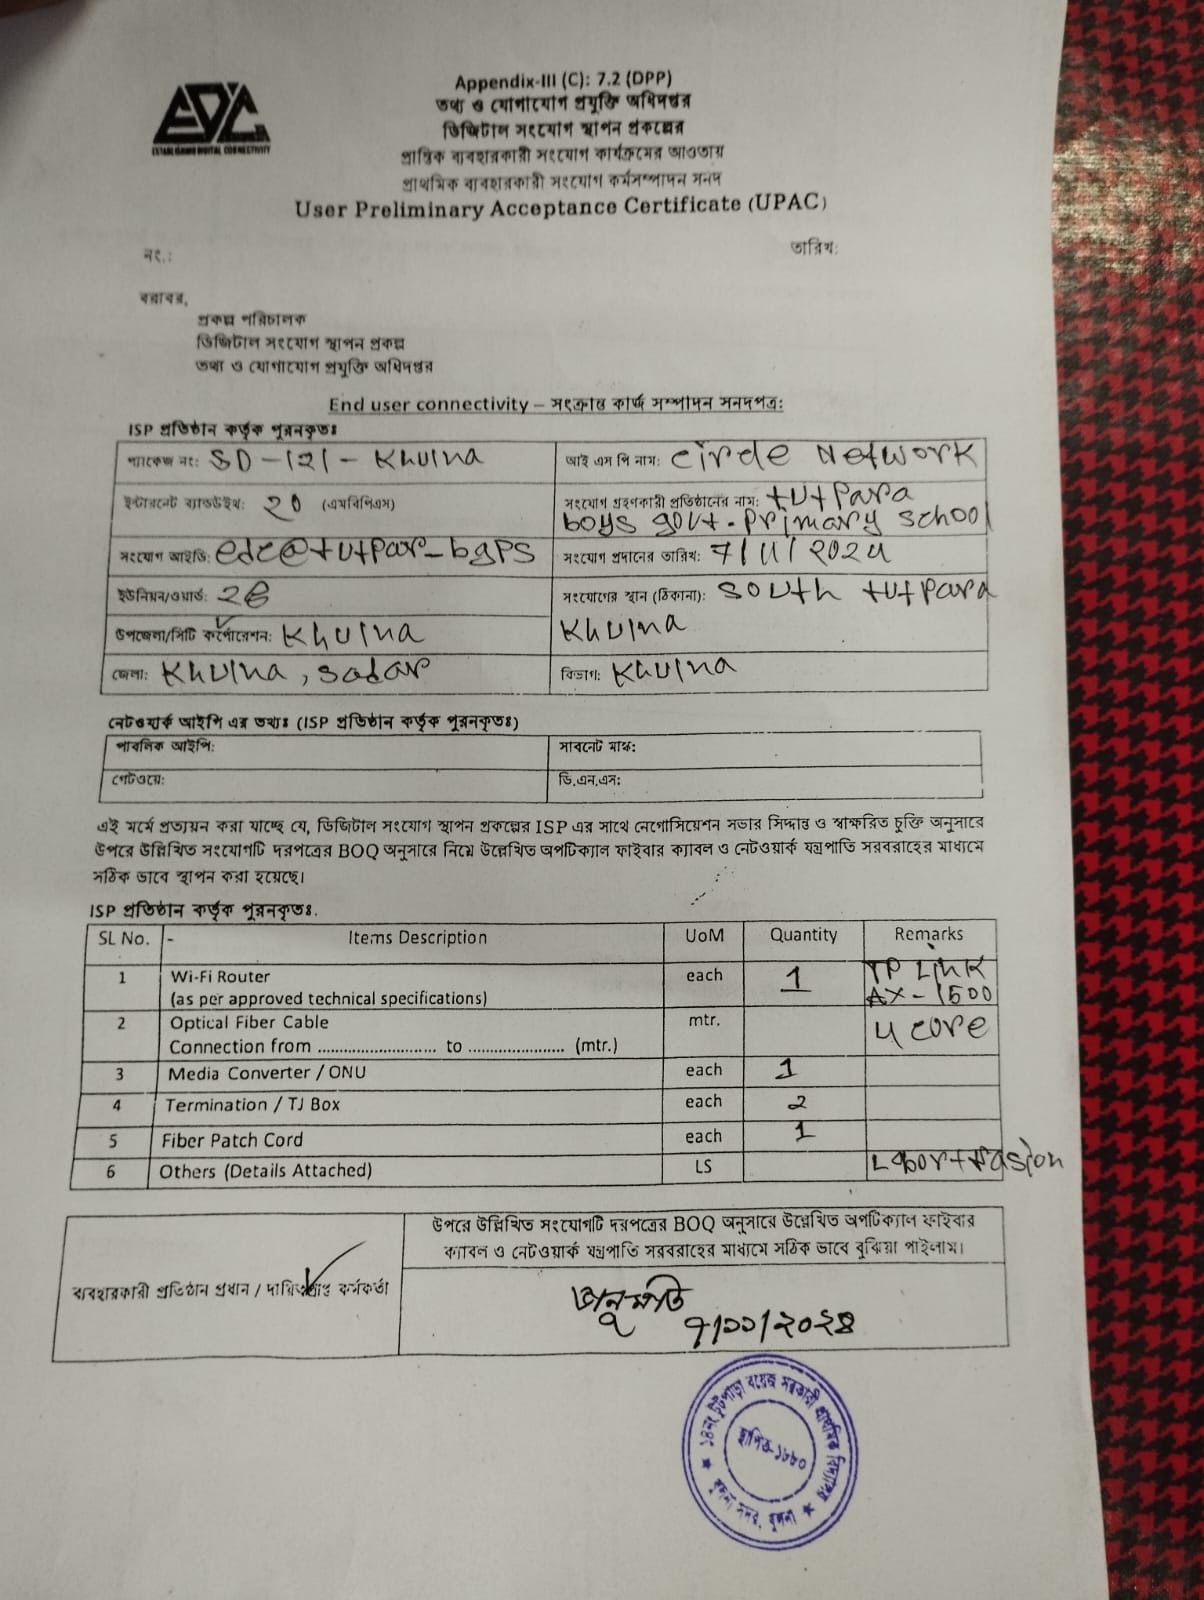 Appendix-III (C): 7.2 (DPP)
তথ্য ও যোগাযোগ প্রযুক্তি অধিদপ্তর
ডিজিটাল সংযোগ স্থাপন প্রকল্পের
প্রান্তিক ব্যবহারকারী সংযোগ কার্যক্রমের আওতায়
প্রাথমিক ব্যবহারকারী সংযোগ কর্মসম্পাদন সনদ
User Preliminary Acceptance Certificate (UPAC)
EDC
ESTABLISHING DIGITAL CONNECTIVITY
নং.:
তারিখ:
বরাবর,
প্রকল্প পরিচালক
ডিজিটাল সংযোগ স্থাপন প্রকল্প
তথ্য ও যোগাযোগ প্রযুক্তি অধিদপ্তর
End user connectivity – সংক্রান্ত কার্জ সম্পাদন সনদপত্র:
ISP প্রতিষ্ঠান কর্তৃক পূরনকৃতঃ
প্যাকেজ নং: SD-121-Khulna
আই এস পি নাম: Circle Network
ইন্টারনেট ব্যান্ডউইথ: 20 (এমবিপিএস)
সংযোগ গ্রহণকারী প্রতিষ্ঠানের নাম: tutpara
boys govt. primary school
সংযোগ আইডি: edc@tutpar_bgps
সংযোগ প্রদানের তারিখ: 7/11/2024
ইউনিয়ন/ওয়ার্ড: 28
সংযোগের স্থান (ঠিকানা): South tutpara
Khulna
উপজেলা/সিটি কর্পোরেশন: Khulna
জেলা: Khulna, sadar
বিভাগ: Khulna
নেটওয়ার্ক আইপি এর তথ্যঃ (ISP প্রতিষ্ঠান কর্তৃক পূরনকৃতঃ)
পাবলিক আইপি:
সাবনেট মাস্ক:
গেটওয়ে:
ডি.এন.এস:
এই মর্মে প্রত্যয়ন করা যাচ্ছে যে, ডিজিটাল সংযোগ স্থাপন প্রকল্পের ISP এর সাথে নেগোসিয়েশন সভার সিদ্দান্ত ও স্বাক্ষরিত চুক্তি অনুসারে
উপরে উল্লিখিত সংযোগটি দরপত্রের BOQ অনুসারে নিম্নে উল্লেখিত অপটিক্যাল ফাইবার ক্যাবল ও নেটওয়ার্ক যন্ত্রপাতি সরবরাহের মাধ্যমে
সঠিক ভাবে স্থাপন করা হয়েছে।
ISP প্রতিষ্ঠান কর্তৃক পূরনকৃতঃ.
SL No. - Items Description UoM Quantity Remarks
1 Wi-Fi Router each 1 TP Link
(as per approved technical specifications) AX-1500
2 Optical Fiber Cable mtr. 4 core
Connection from ........................... to ...................... (mtr.)
3 Media Converter / ONU each 1
4 Termination / TJ Box each 2
5 Fiber Patch Cord each 1
6 Others (Details Attached) LS
উপরে উল্লিখিত সংযোগটি দরপত্রের BOQ অনুসারে উল্লেখিত অপটিক্যাল ফাইবার
ক্যাবল ও নেটওয়ার্ক যন্ত্রপাতি সরবরাহের মাধ্যমে সঠিক ভাবে বুঝিয়া পাইলাম।
ব্যবহারকারী প্রতিষ্ঠান প্রধান / দায়িত্বপ্রাপ্ত কর্মকর্তা
৭/১১/২০২৪
১৪নং টুটপাড়া বয়েজ সরকারী প্রাথমিক বিদ্যালয়
স্থাপিত-১৮৮০
খুলনা সদর, খুলনা